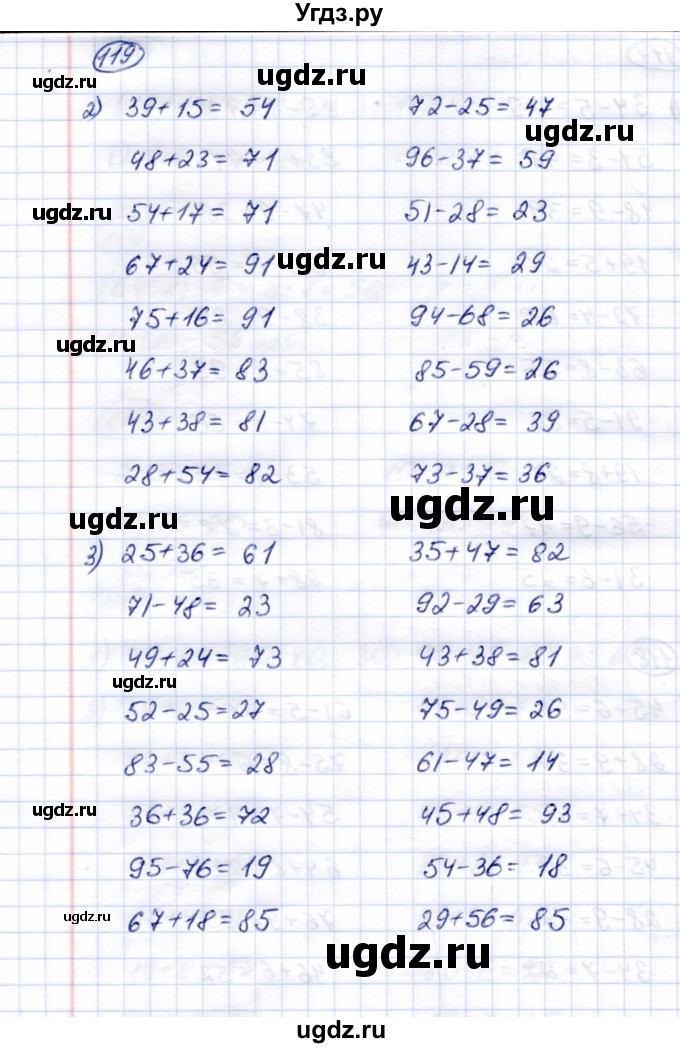 Угдз.ру
119
ugdz.ru
ugdz.ru
2) 39+15= 54 72-25= 47
ugdz.ru
48+23= 71 96-37= 59
ugdz.ru
54+17= 71 51-28= 23
67+24= 91 43-14= 29
ugdz.ru
75+16= 91 94-68= 26
ugdz.ru
46+37= 83 85-59= 26
43+38= 81 67-28= 39
28+54= 82 73-37= 36
ugdz.ru
ugdz.ru
3) 25+36= 61 35+47= 82
71-48= 23 92-29= 63
49+24= 73 43+38= 81
ugdz.ru
52-25=27 75-49= 26
83-55= 28 61-47= 14
ugdz.ru
36+36= 72 45+48= 93
95-76= 19 54-36= 18
ugdz.ru
67+18=85 29+56= 85
ugdz.ru
ugdz.ru